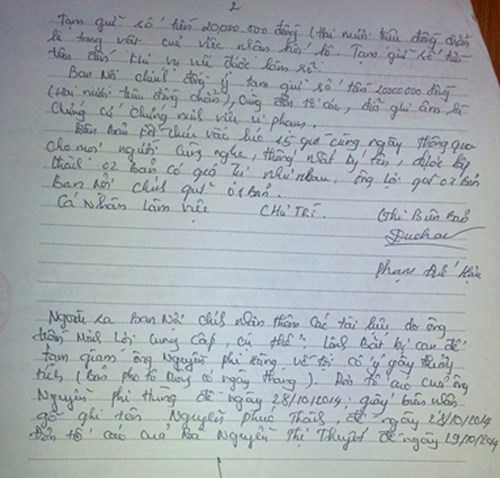 2
Tạm giữ số tiền 20,000.000 đồng (Hai mươi triệu đồng chẵn)
là tang vật của việc nhận hối lộ. Tạm giữ số tiền
trên đến khi vụ việc được làm rõ.
Ban Nội chính đồng ý tạm giữ số tiền 20000000 đồng
(Hai mươi triệu đồng chẵn), cùng đơn tố cáo, đĩa ghi âm là
chứng cứ chứng minh việc vi phạm.
Biên bản kết thúc vào lúc 15 giờ cùng ngày thông qua
cho mọi người cùng nghe, thống nhất ký tên, được lập
thành 02 bản có giá trị như nhau. ông Lợi giữ 01 Bản
Ban Nội chính giữ 01 Bản.
Cá Nhân làm việc CHỦ TRÌ. Ghi Biên Bản
Phạm Đức
Ngoài ra Ban Nội chính nhận thêm các tài liệu do ông
trần Minh Lợi cung cấp, cụ thể: Lệnh Bắt bị can để
tạm giam ông Nguyễn phi Hùng về tội cố ý gây thương
tích (bản phô tô không có ngày tháng). Đơn tố cáo của ông
Nguyễn phi Hùng đề ngày 28/10/2014, giấy biên nhận
gốc ghi tên Nguyễn phúc Thành, đề ngày 28/10/2014
Đơn tố cáo của Bà Nguyễn Thị Thuyết đề ngày 29/10/2014